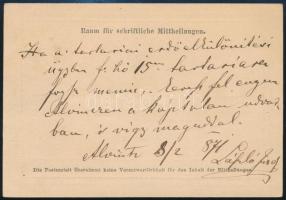 Raum für schriftliche Mittheilungen.
Ha a tartariai erdőelkülönítési
ügyben f. hó 15én tartariara
fogsz menni, engem
Alvinczen a káptalan udvar-
ban, 's vigy magaddal.
Alvincz 8/2 871
László
Die Postanstalt übernimmt keine Verantwortlichkeit für den Inhalt der Mittheilungen.